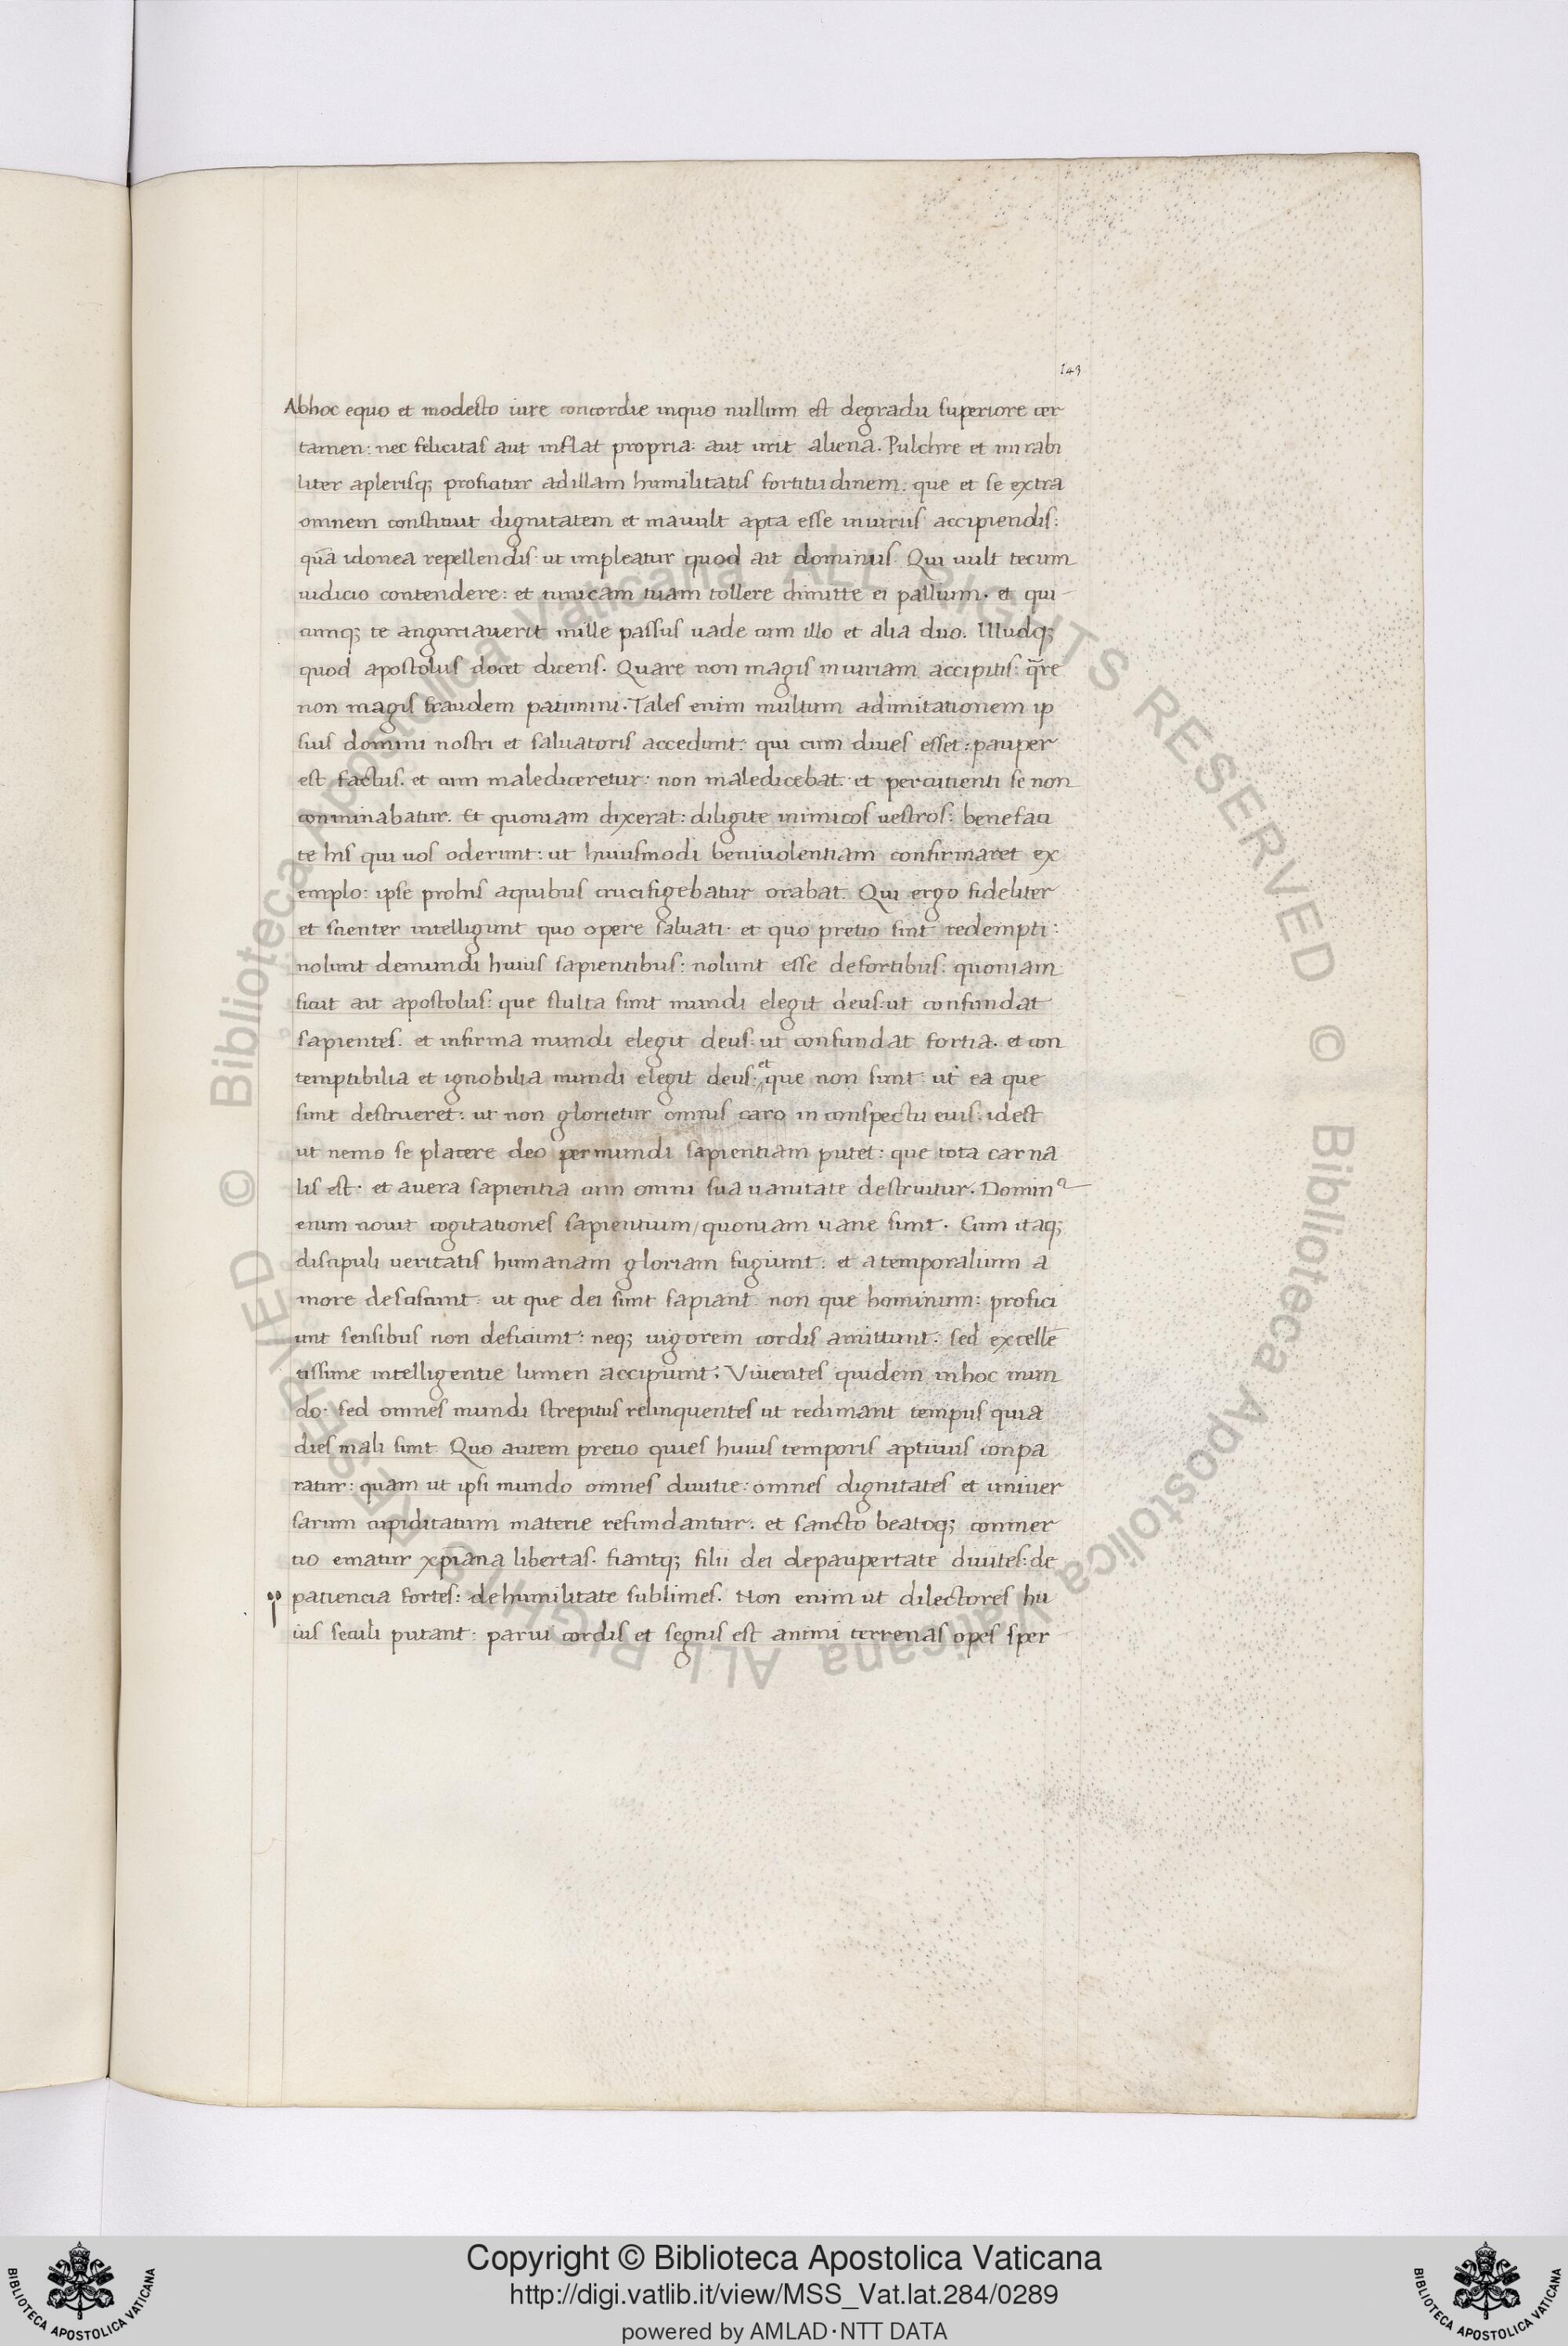 143
Abhoc equo et modesto iure concordie inquo nullum est degradu superiore cer
tamen: nec felicitas aut inflat propria. aut urit aliena. Pulchre et mirabi
liter aplerisq; proficitur adillam humilitatis fortitudinem. que et se extra
omnem constituit dignitatem et mauult apta esse iniuriis accipiendis:
quā idonea repellendis. ut impleatur quod ait dominus. Qui uult tecum
iudicio contendere: et tunicam tuam tollere dimitte ei pallium. et qui-
cumq; te angariauerit mille passus uade cum illo et alia duo. Illudq;
quod apostolus docet dicens. Quare non magis iniuriam accipitis: q̄re
non magis fraudem patimini. Tales enim multum adimitationem ip
sius domini nostri et saluatoris accedunt: qui cum diues esset: pauper
est factus. et cum malediceretur: non maledicebat. et percutienti se non
comminabatur. Et quoniam dixerat: diligite inimicos uestros: benefaci
te his qui uos oderunt: ut huiusmodi beniuolentiam confirmaret ex
emplo: ipse prohis aquibus crucifigebatur orabat. Qui ergo fideliter
et scienter intelligunt quo opere saluati. et quo pretio sint redempti:
nolunt demundi huius sapientibus: nolunt esse defortibus. quoniam
sicut ait apostolus: que stulta sunt mundi elegit deus. ut confundat
sapientes. et infirma mundi elegit deus: ut confundat fortia. et con
temptibilia et ignobilia mundi elegit deus: et que non sunt: ut ea que
sunt destrueret: ut non glorietur omnis caro in conspectu eius. idest
ut nemo se placere deo permundi sapientiam putet: que tota carna
lis est. et auera sapientia cum omni sua uanitate destruitur. Domin9
enim nouit cogitationes sapientium/ quoniam uane sunt. Cum itaq;
discipuli ueritatis humanam gloriam fugiunt: et atemporalium a
more desciscunt: ut que dei sunt sapiant non que hominum: profici
unt sensibus non deficiunt: neq; uigorem cordis amittunt. sed excellē
tissime intelligentie lumen accipiunt. Viuentes quidem inhoc mun
do. sed omnes mundi strepitus relinquentes ut redimant tempus quia
dies mali sunt. Quo autem pretio quies huius temporis aptiuus conpa
ratur: quam ut ipsi mundo omnes diuitie: omnes dignitates et uniuer
sarum cupiditatum materie refundantur. et sancto beatoq; commer
tio ematur xp̄iana libertas. fiantq; filii dei depaupertate diuites: de
patiencia fortes: dehumilitate sublimes. Non enim ut dilectores hu
ius seculi putant: parui cordis et segnis est animi terrenas opes sper
© Biblioteca Apostolica Vaticana ALL RIGHTS RESERVED © Biblioteca Apostolica Vaticana ALL RIGHTS RESERVED
Copyright © Biblioteca Apostolica Vaticana
http://digi.vatlib.it/view/MSS_Vat.lat.284/0289
powered by AMLAD·NTT DATA
BIBLIOTECA APOSTOLICA VATICANA
BIBLIOTECA APOSTOLICA VATICANA